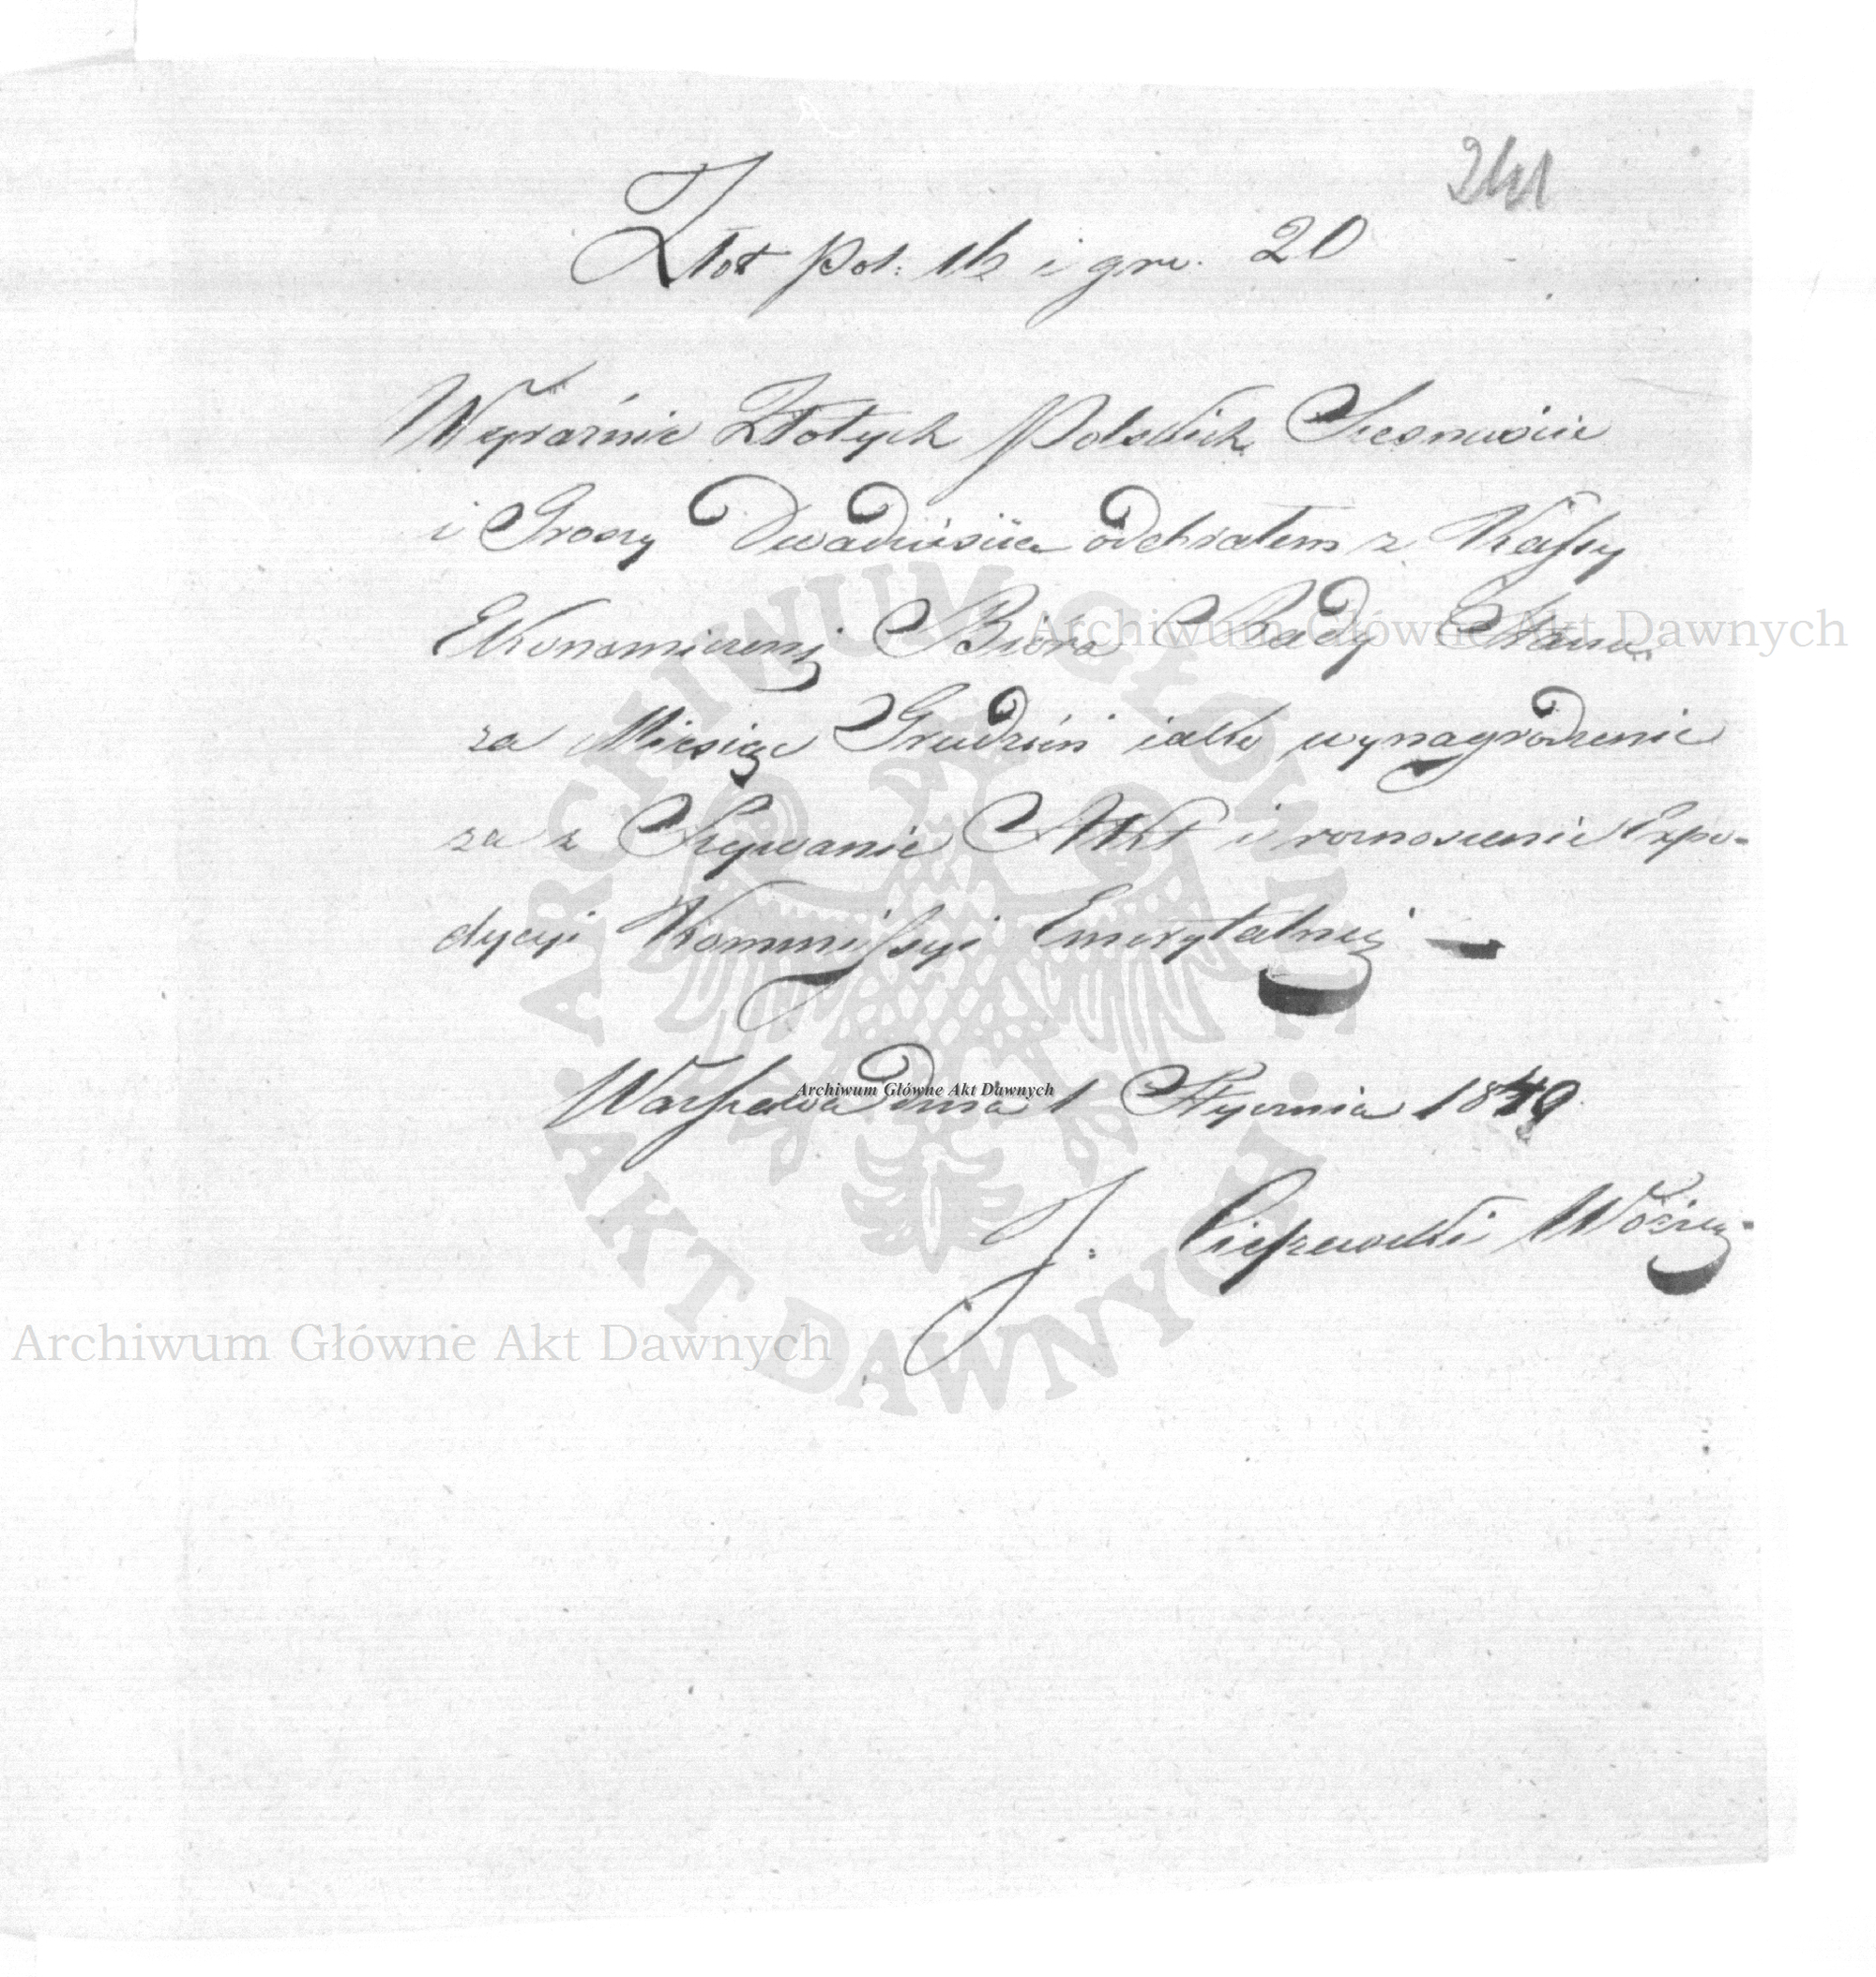 241
Złot pol: 16 i gr. 20
Wyraźnie Złotych Polskich Szesnaście
i Groszy Dwadzieścia odebrałem z Kassy
Ekonomiczney Biora Rady Stanu
za Miesiąc Grudzień iako wynagrodzenie
za z Szywanie Akt i roznoszenie Expe-
dycyi Kommissyi Emerytalney
Warszawa dnia 1 Stycznia 18
J. Woźny
Archiwum Główne Akt Dawnych
Archiwum Główne Akt Dawnych
Archiwum Główne Akt Dawnych
ARCHIWUM GŁÓWNE AKT DAWNYCH